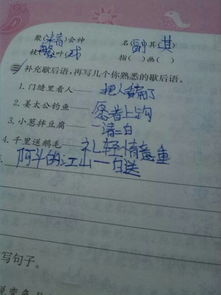 聚精会神 名副其实
枝繁叶茂 指( )画( )
三 补充歇后语,再写几个你熟悉的歇后语。
1. 门缝里看人——把人看扁了
2. 姜太公钓鱼——愿者上钩
3. 小葱拌豆腐——一清二白
4. 千里送鹅毛——礼轻情意重
阿斗的江山——白送
写句子。